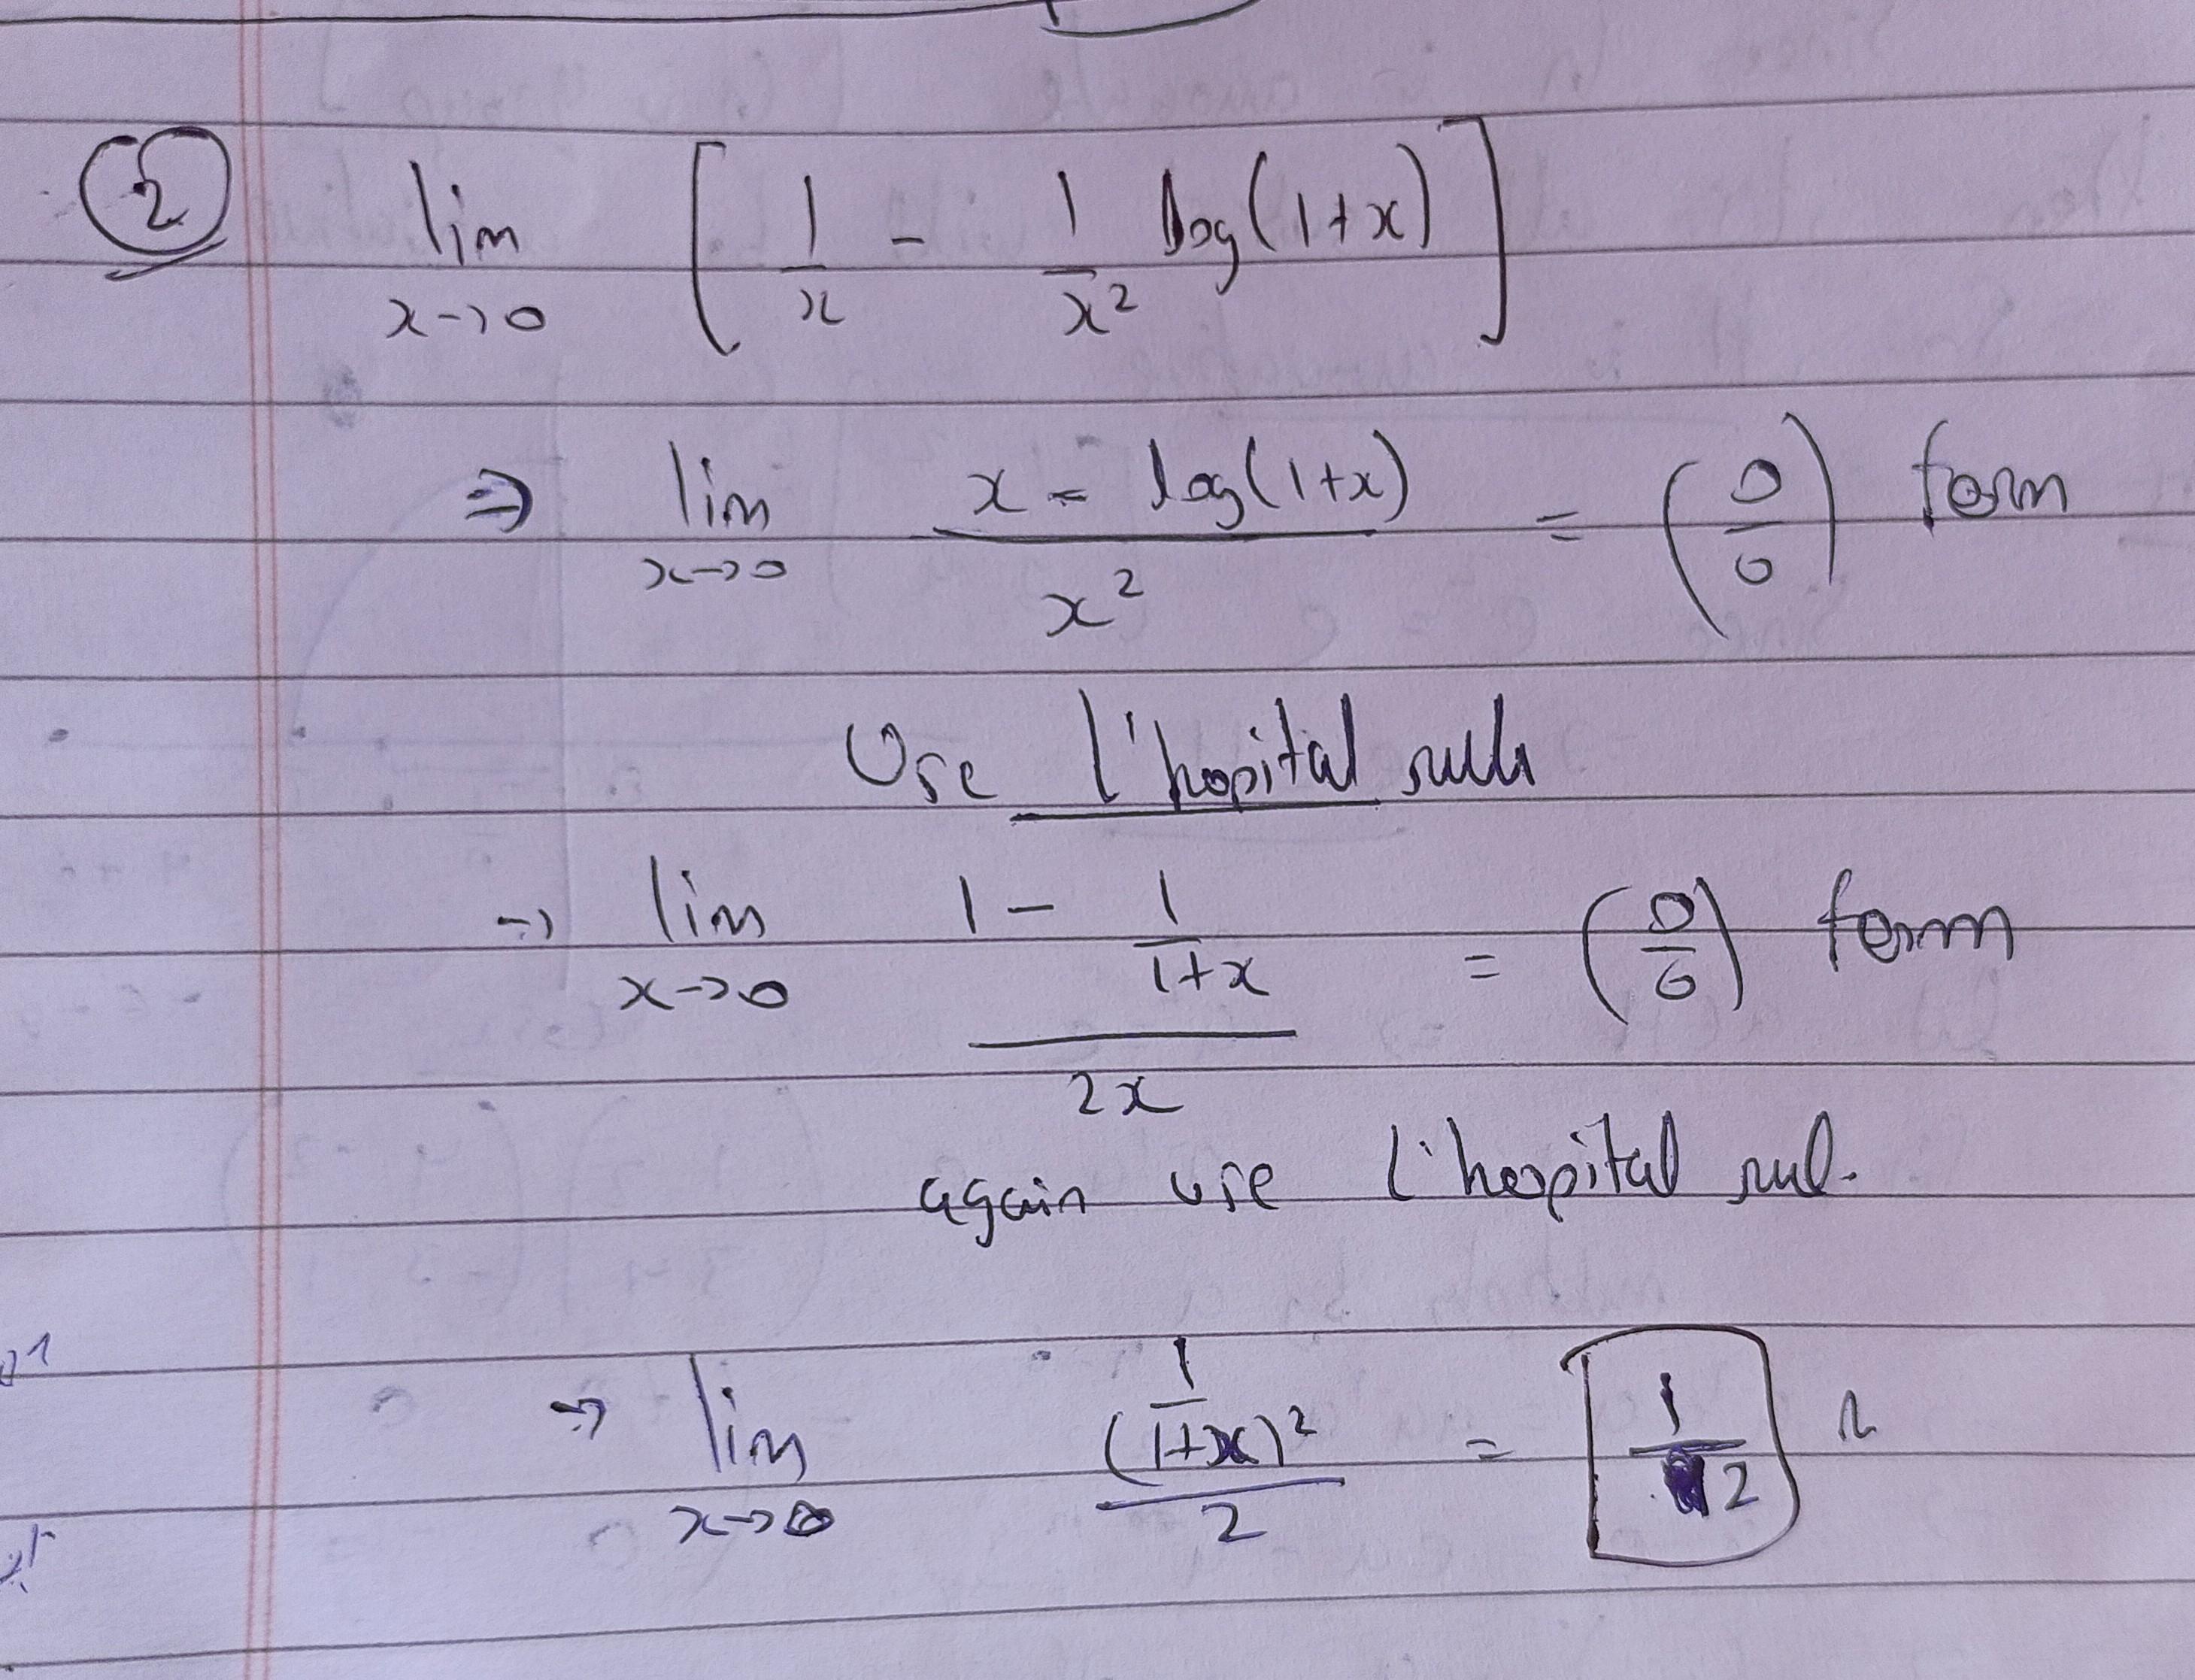 ② lim x→0 [ 1/x - 1/x² log(1+x) ]
⇒ lim x→0 (x - log(1+x)) / x² = (0/0) form
Use l'hopital rule
→ lim x→0 (1 - 1/(1+x)) / 2x = (0/0) form
again use l'hospital rul.
→ lim x→0 (1/(1+x)²) / 2 = 1/2